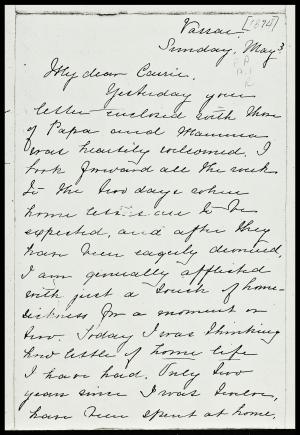 Vassar
[1874]
Sunday, May 3
My dear Carrie,
Yesterday your
letter enclosed with those
of Papa and Mamma
was heartily welcomed. I
look forward all the week
to the two days when
home letters are to be
expected, and after they
have been eagerly devoured,
I am generally afflicted
with just a touch of home-
sickness for a moment or
two. Today I was thinking
how little of home life
I have had. Only two
years since I was twelve,
have been spent at home.